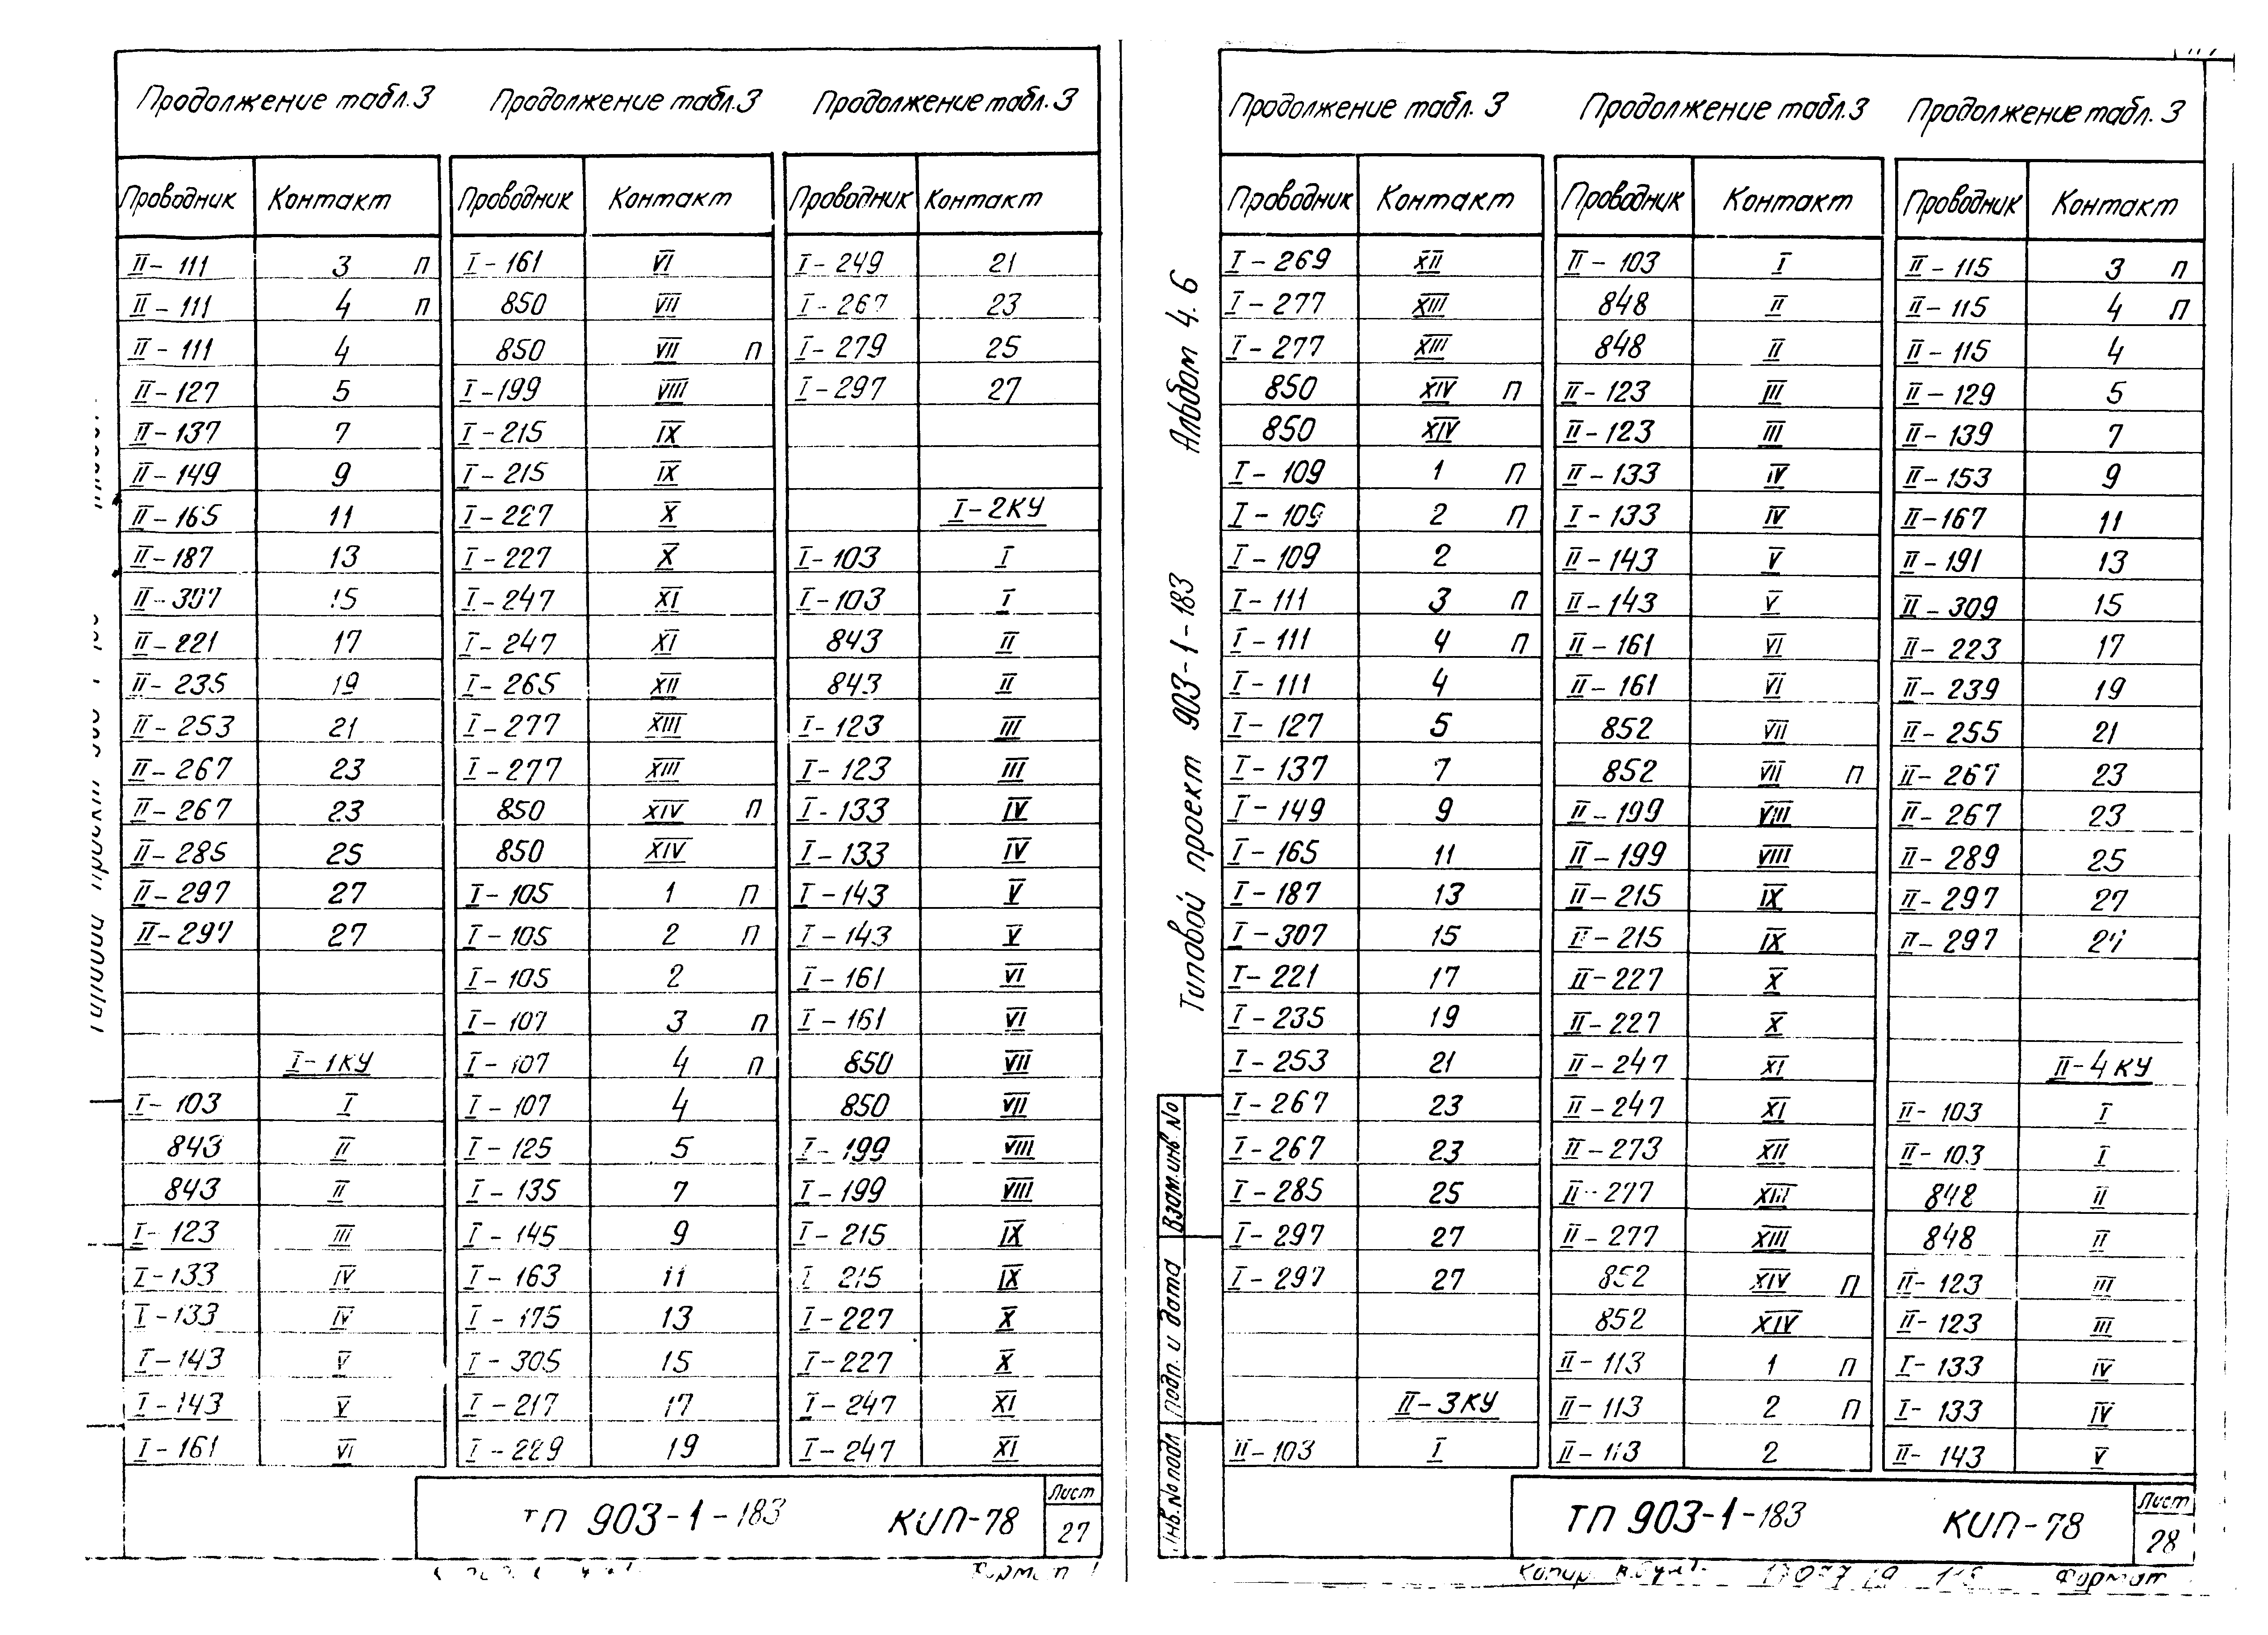 Продолжение табл.3 Продолжение табл.3 Продолжение табл.3
Проводник Контакт Проводник Контакт Проводник Контакт
II-111 3 п I-161 VI I-249 21
II-111 4 п 850 VII I-267 23
II-111 4 850 VII п I-279 25
II-127 5 I-199 VIII I-297 27
II-137 7 I-215 IX
II-149 9 I-215 IX
II-165 11 I-227 X I-2КУ
II-187 13 I-227 X I-103 I
II-307 15 I-247 XI I-103 I
II-221 17 I-247 XI 843 II
II-235 19 I-265 XII 843 II
II-253 21 I-277 XIII I-123 III
II-267 23 I-277 XIII I-123 III
II-267 23 850 XIV п I-133 IV
II-285 25 850 XIV I-133 IV
II-297 27 I-105 1 п I-143 V
II-297 27 I-105 2 п I-143 V
I-105 2 I-161 VI
I-107 3 п I-161 VI
I-1КУ I-107 4 п 850 VII
I-103 I I-107 4 850 VII
843 II I-125 5 I-199 VIII
843 II I-135 7 I-199 VIII
I-123 III I-145 9 I-215 IX
I-133 IV I-163 11 I 215 IX
I-133 IV I-175 13 I-227 X
I-143 V I-305 15 I-227 X
I-143 V I-217 17 I-247 XI
I-161 VI I-229 19 I-247 XI
ТП 903-1-183 КИП-78 Лист 27
Формат
Альбом 4.6
Типовой проект 903-1-183
Взам.инв No
Подп. и дата
Инв.No подл
Продолжение табл. 3 Продолжение табл.3 Продолжение табл. 3
Проводник Контакт Проводник Контакт Проводник Контакт
I-269 XII II-103 I II-115 3 п
I-277 XIII 848 II II-115 4 п
I-277 XIII 848 II II-115 4
850 XIV п II-123 III II-129 5
850 XIV II-123 III II-139 7
I-109 1 п II-133 IV II-153 9
I-109 2 п I-133 IV II-167 11
I-109 2 II-143 V II-191 13
I-111 3 п II-143 V II-309 15
I-111 4 п II-161 VI II-223 17
I-111 4 II-161 VI II-239 19
I-127 5 852 VII II-255 21
I-137 7 852 VII п II-267 23
I-149 9 II-199 VIII II-267 23
I-165 11 II-199 VIII II-289 25
I-187 13 II-215 IX II-297 27
I-307 15 II-215 IX II-297 27
I-221 17 II-227 X
I-235 19 II-227 X
I-253 21 II-247 XI II-4КУ
I-267 23 II-247 XI II-103 I
I-267 23 II-273 XII II-103 I
I-285 25 II-277 XIII 848 II
I-297 27 II-277 XIII 848 II
I-297 27 852 XIV п II-123 III
852 XIV II-123 III
II-113 1 п I-133 IV
II-3КУ II-113 2 п I-133 IV
II-103 I II-113 2 II-143 V
ТП 903-1-183 КИП-78 Лист 28
Копир. Формат